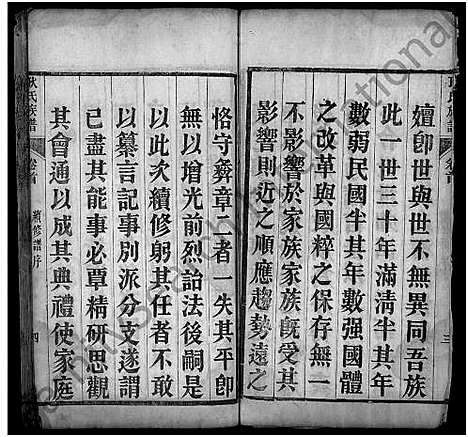 嬗卽世與世不無異同吾族
此一世三十年滿清半其年
數弱民國半其年數强國體
之改革與國粹之保存無一
不影響於家族家族旣受其
影響則近之順應趨勢遠之
三
恪守彝章二者一失其平卽
無以增光前烈詒法後嗣是
以此次續修躬其任者不敢
以纂言記事別派分支遂謂
已盡其能事必覃精研思觀
其會通以成其典禮使家庭
耿氏族譜
卷首
續修譜序
四